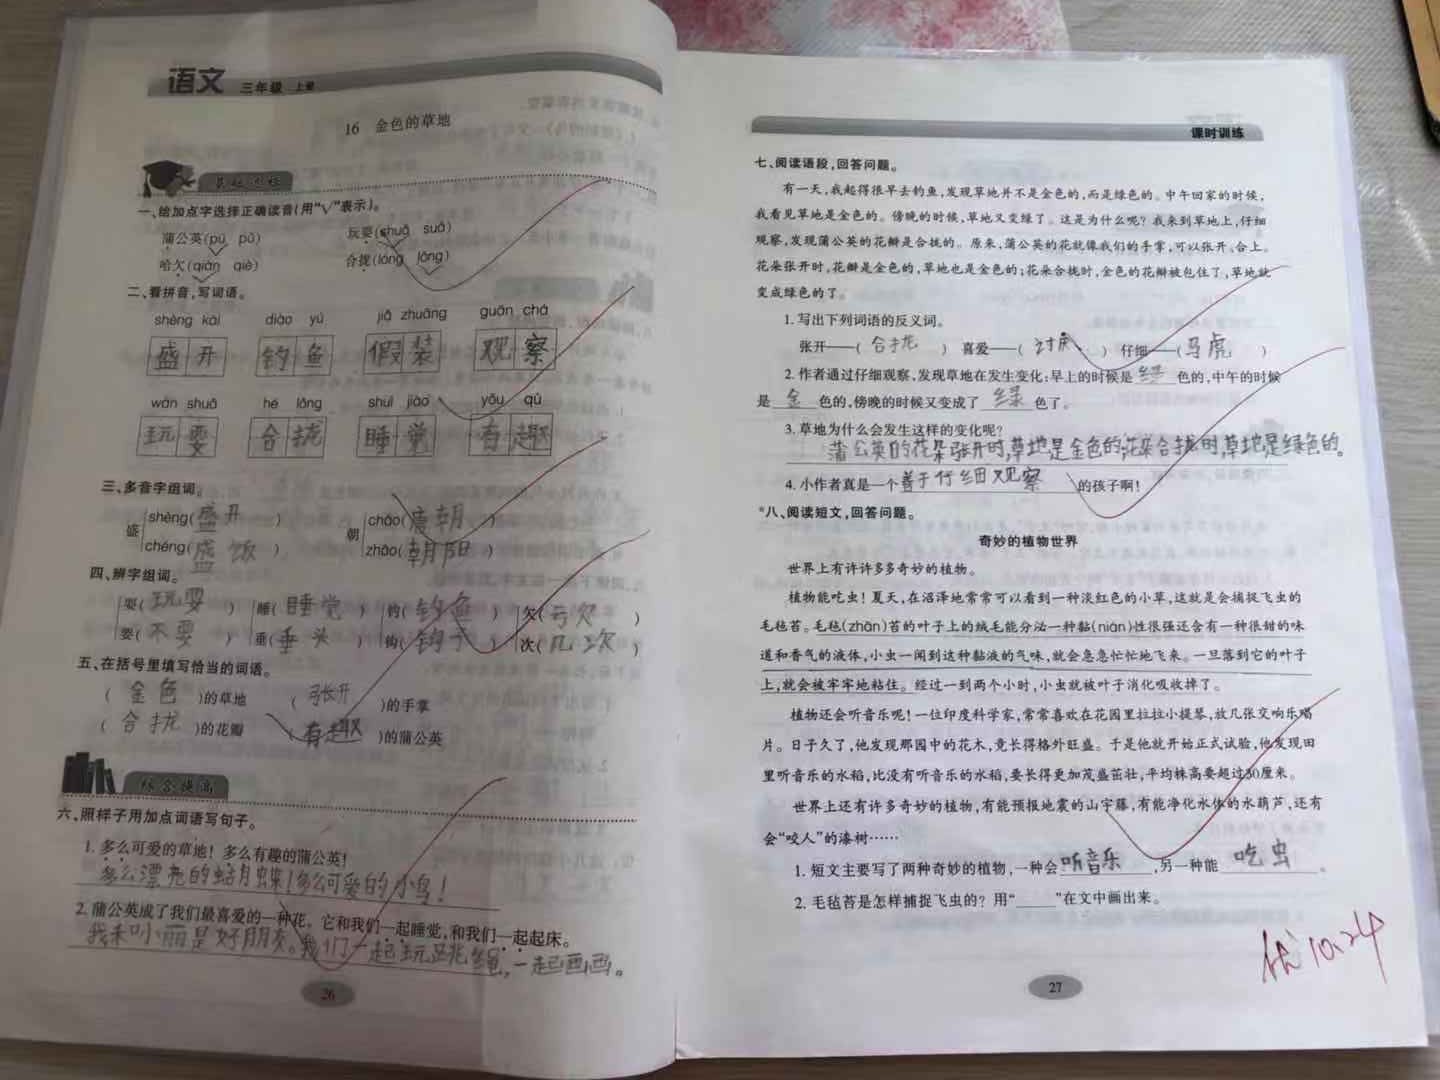 语文 三年级 上册
16 金色的草地
基础达标
一、给加点字选择正确读音(用“√”表示)。
蒲公英(pú pǔ) 玩耍(shuǎ suǎ)
哈欠(qiàn qiè) 合拢(lóng lǒng)
二、看拼音,写词语。
shèng kāi diào yú jiǎ zhuāng guān chá
盛开 钓鱼 假装 观察
wán shuǎ hé lǒng shuì jiào yǒu qù
玩耍 合拢 睡觉 有趣
三、多音字组词。
盛 shèng(盛开) 朝 cháo(唐朝)
chéng(盛饭) zhāo(朝阳)
四、辨字组词。
耍(玩耍) 睡(睡觉) 钓(钓鱼) 欠(亏欠)
要(不要) 垂(垂头) 钩(钩子) 次(几次)
五、在括号里填写恰当的词语。
(金色)的草地 (张开)的手掌
(合拢)的花瓣 (有趣)的蒲公英
综合提高
六、照样子用加点词语写句子。
1. 多么可爱的草地! 多么有趣的蒲公英!
多么漂亮的蝴蝶!多么可爱的小鸟!
2. 蒲公英成了我们最喜爱的一种花。它和我们一起睡觉,和我们一起起床。
我和小丽是好朋友。我们一起玩跳绳,一起画画。
26
课时训练
七、阅读语段,回答问题。
有一天,我起得很早去钓鱼,发现草地并不是金色的,而是绿色的。中午回家的时候,
我看见草地是金色的。傍晚的时候,草地又变绿了。这是为什么呢? 我来到草地上,仔细
观察,发现蒲公英的花瓣是合拢的。原来,蒲公英的花就像我们的手掌,可以张开、合上。
花朵张开时,花瓣是金色的,草地也是金色的;花朵合拢时,金色的花瓣被包住了,草地就
变成绿色的了。
1. 写出下列词语的反义词。
张开——(合拢) 喜爱——(讨厌) 仔细——(马虎)
2. 作者通过仔细观察,发现草地在发生变化:早上的时候是绿色的,中午的时候
是金色的,傍晚的时候又变成了绿色了。
3. 草地为什么会发生这样的变化呢?
蒲公英的花朵张开时,草地是金色的,花朵合拢时,草地是绿色的。
4. 小作者真是一个善于仔细观察的孩子啊!
*八、阅读短文,回答问题。
奇妙的植物世界
世界上有许许多多奇妙的植物。
植物能吃虫! 夏天,在沼泽地常常可以看到一种淡红色的小草,这就是会捕捉飞虫的
毛毡苔。毛毡(zhān)苔的叶子上的绒毛能分泌一种黏(nián)性很强还含有一种很甜的味
道和香气的液体,小虫一闻到这种黏液的气味,就会急急忙忙地飞来。一旦落到它的叶子
上,就会被牢牢地粘住。经过一到两个小时,小虫就被叶子消化吸收掉了。
植物还会听音乐呢! 一位印度科学家,常常喜欢在花园里拉拉小提琴,放几张交响乐唱
片。日子久了,他发现那园中的花木,竟长得格外旺盛。于是他就开始正式试验,他发现田
里听音乐的水稻,比没有听音乐的水稻,要长得更加茂盛茁壮,平均株高要超过30厘米。
世界上还有许多奇妙的植物,有能预报地震的山字藤,有能净化水体的水葫芦,还有
会“咬人”的漆树……
1. 短文主要写了两种奇妙的植物,一种会听音乐,另一种能吃虫。
2. 毛毡苔是怎样捕捉飞虫的? 用“____”在文中画出来。
优 10.24
27